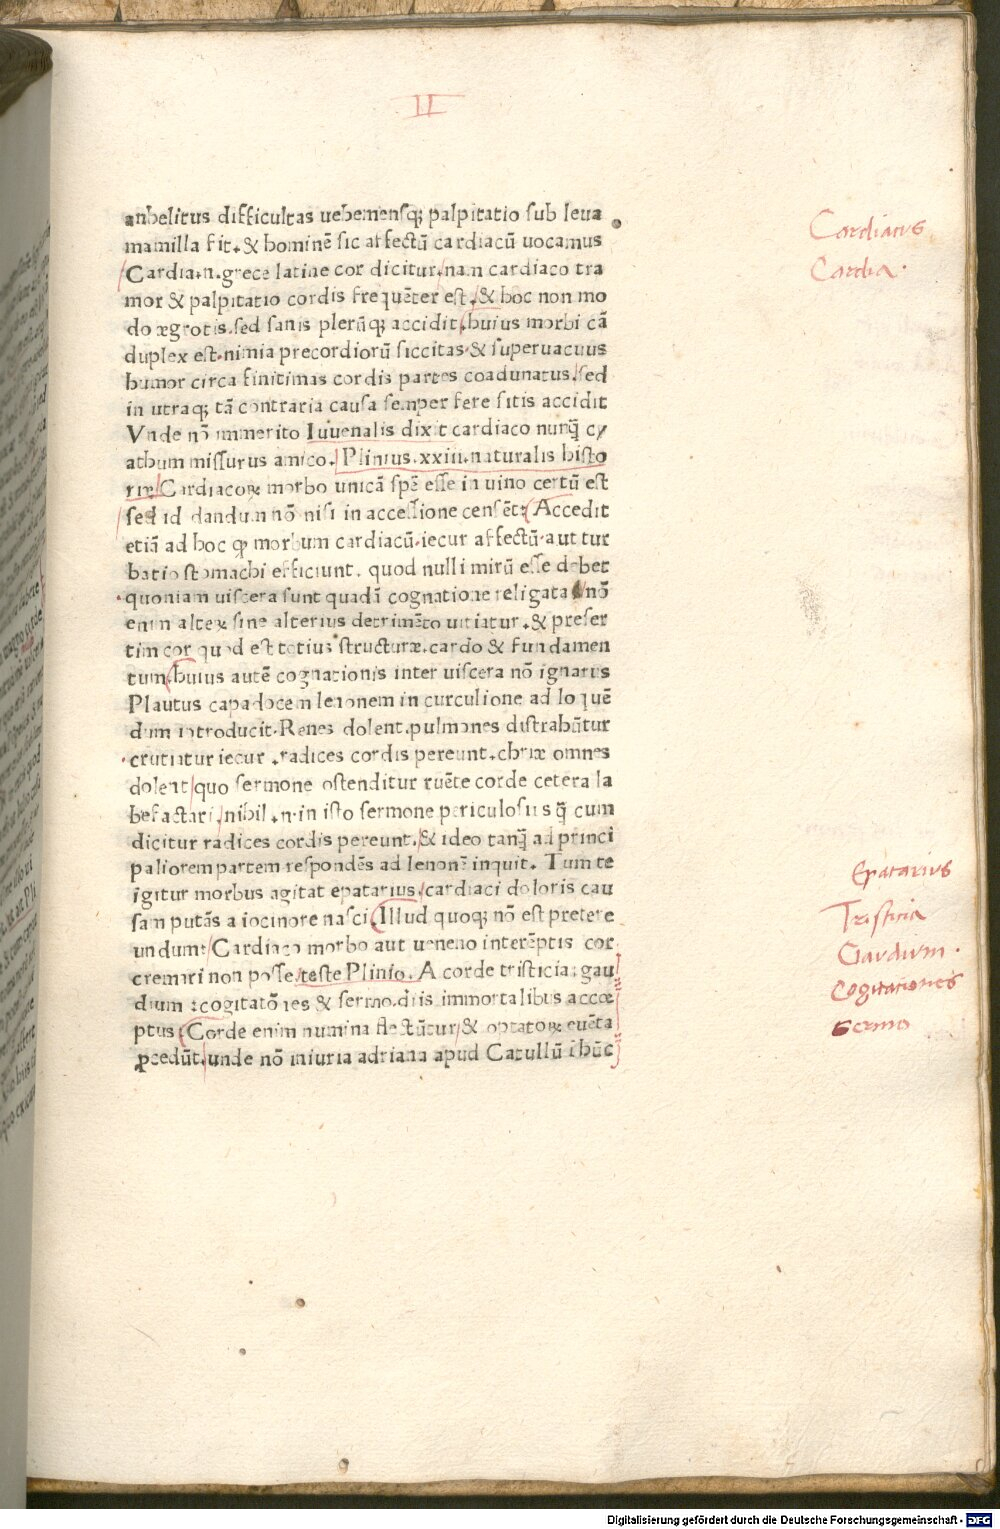 II
anhelitus difficultas uehemensq; palpitatio sub leua
mamilla fit. & hominē sic affectū cardiacū uocamus
Cardia.n.grece latine cor dicitur.nam cardiaco tra
mor & palpitatio cordis frequēter est.& hoc non mo
do ægrotis.sed sanis plerūq; accidit.huius morbi cā
duplex est.nimia precordiorū siccitas.& superuacuus
humor circa finitimas cordis partes coadunatus.sed
in utraq; tā contraria causa semper fere sitis accidit
Vnde nō immerito Iuuenalis dixit cardiaco nunq̄ cy
athum missurus amico. Plinius.xxiii.naturalis histo
riæ Cardiacoꝝ morbo unicā spē esse in uino certū est
sed id dandum nō nisi in accessione censēt: Accedit
etiā ad hoc ꝙ morbum cardiacū.iecur affectū.aut tur
batio stomachi efficiunt. quod nulli mirū esse debet
quoniam uiscera sunt quadā cognatione religata nō
enim alteꝝ sine alterius detrimēto uitiatur.& preser
tim cor quod est totius structuræ.cardo & fundamen
tum huius autē cognationis inter uiscera nō ignarus
Plautus capadocem lenonem in curculione ad loquē
dum introducit.Renes dolent.pulmones distrahūtur
crutiatur iecur .radices cordis pereunt.ehriæ omnes
dolent quo sermone ostenditur ruēte corde cetera la
befactari.nihil .n.in isto sermone periculosius q̄ cum
dicitur radices cordis pereunt.& ideo tanq̄ ad princi
paliorem partem respondēs ad lenonē inquit. Tum te
igitur morbus agitat epatarius cardiaci doloris cau
sam putās a iocinore nasci Illud quoq; nō est pretere
undum: Cardiaco morbo aut ueneno interēptis cor
cremari non posse teste Plinio. A corde tristicia: gau
dium :cogitatōes & sermo.diis immortalibus accœ
ptus Corde enim numina flectūtur & optatoꝝ euēta
ꝓcedūt.unde nō iniuria adriana apud Catullū ī hūc
Cardiacus
Cardia.
Epatarius
Tristicia
Gaudium.
Cogitationes
Sermo
Digitalisierung gefördert durch die Deutsche Forschungsgemeinschaft - DFG